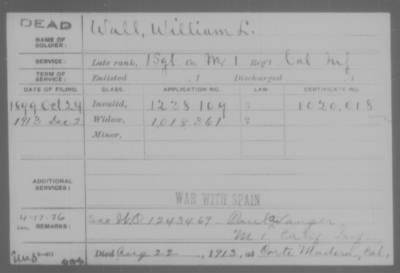 DEAD
NAME OF SOLDIER: Wall, William L.
SERVICE: Late rank, 1Sgt Co M, 1 Reg't Cal Inf
TERM OF SERVICE: Enlisted , 1 Discharged , 1
DATE OF FILING. CLASS. APPLICATION NO. LAW. CERTIFICATE NO.
1899 Oct 24 Invalid, 1228104 1020,018
1913 Dec 2 Widow, 1,018,361
Minor,
ADDITIONAL SERVICES:
WAR WITH SPAIN
4-17-26 REMARKS: 1243469
M 1 Inf
Died Aug 22, 1913, at Corte Madera, Cal.